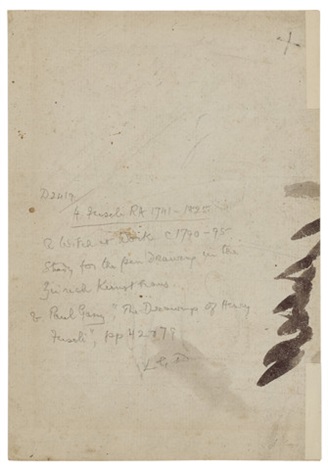 D2417
H. Fuseli RA 1741-1825
A Witch at work c1790-95
Study for the pen Drawing in the
Zürich Kunsthaus.
v. Paul Ganz, "The Drawings of Henry
Fuseli", pp 42 & 79